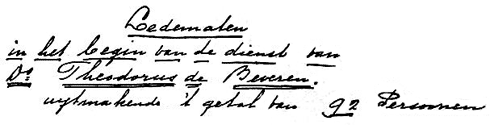 Ledematen
in het begin van de dienst van
Ds Theodorus de Beveren.
uytmakende 't getal van 92 Persoonen